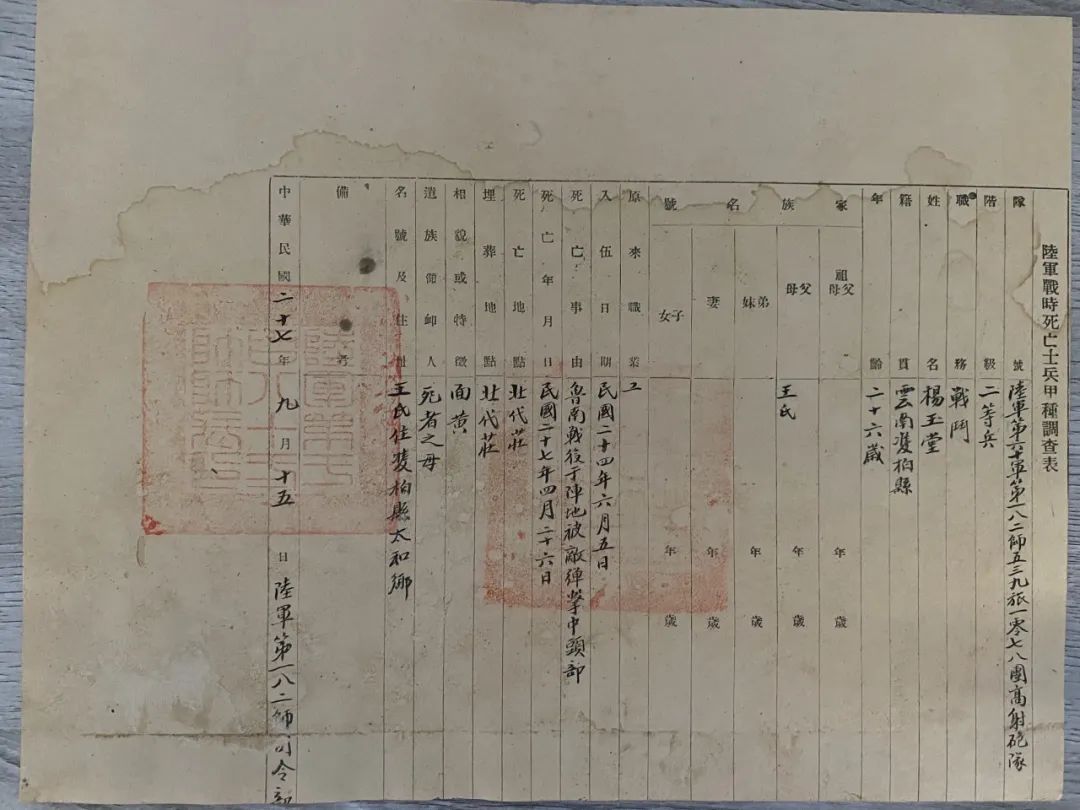 陸軍戰時死亡士兵甲種調查表
隊號 陸軍第六十軍第一八二師五三九旅一零七八團高射砲隊
階級 二等兵
職務 戰鬥
姓名 楊玉堂
籍貫 雲南雙柏縣
年齡 二十六歲
家族名號
祖父母 年 歲
父母 王氏 年 歲
弟妹 年 歲
妻 年 歲
子女 年 歲
原來職業 工
入伍日期 民國二十四年六月五日
死亡事由 魯南戰役于陣地被敵彈擊中頭部
死亡年月日 民國二十七年四月二十六日
死亡地點 北代莊
埋葬地點 北代莊
相貌或特徵 面黃
遺族領卹人 死者之母
名號及住址 王氏住雙柏縣太和鄉
備考
中華民國二十七年九月十五日 陸軍第一八二師司令部